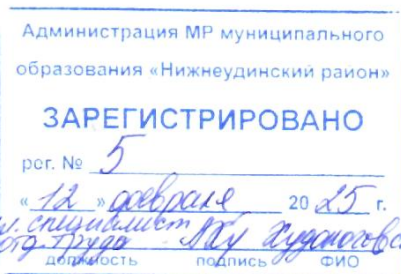 Администрация МР муниципального
образования «Нижнеудинский район»
ЗАРЕГИСТРИРОВАНО
рег. № 5
«12» февраля 2025 г.
гл. специалист
отд труда
должность подпись ФИО